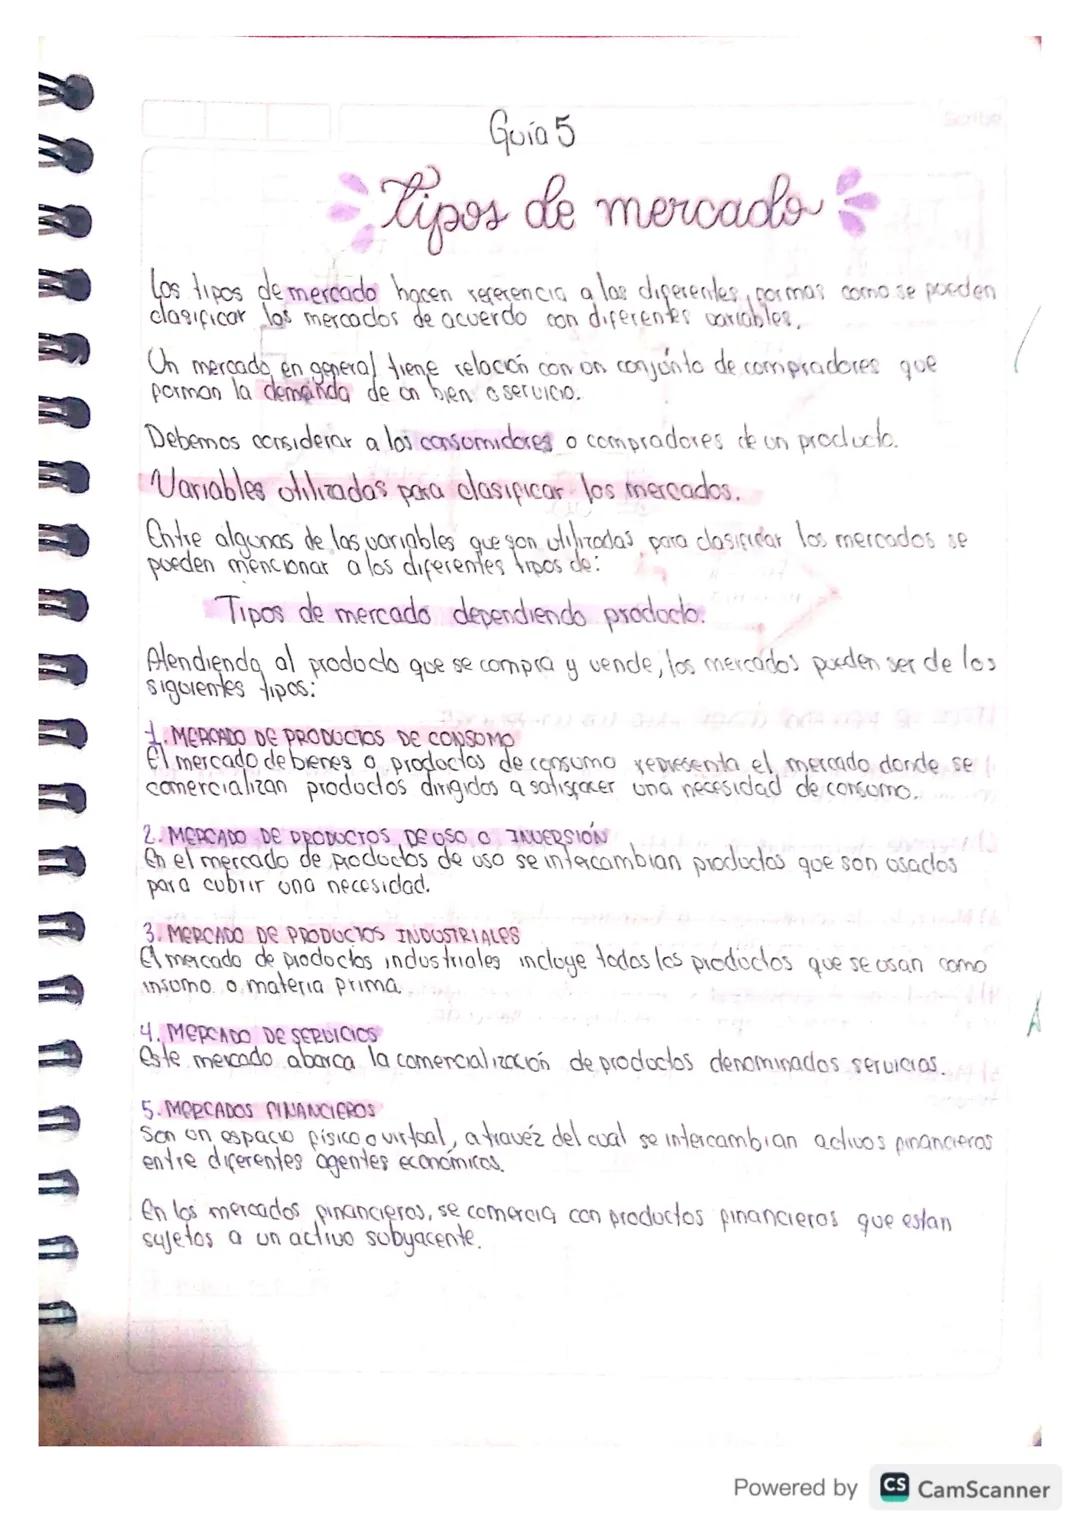 Scribe
Guía 5
Tipos de mercado
Los tipos de mercado hacen referencia a las diferentes formas como se pueden
clasificar los mercados de acuerdo con diferentes variables.
Un mercado, en general tiene relación con un conjunto de compradores que
forman la demanda de un bien o servicio.
Debemos considerar a los consumidores o compradores de un producto.
Variables utilizadas para clasificar los mercados.
Entre algunas de las variables que son utilizadas para clasificar los mercados se
pueden mencionar a los diferentes tipos de:
Tipos de mercado dependiendo producto.
Atendiendo al producto que se compra y vende, los mercados pueden ser de los
siguientes tipos:
1. MERCADO DE PRODUCTOS DE CONSUMO
El mercado de bienes o productos de consumo representa el mercado donde se
comercializan productos dirigidos a satisfacer una necesidad de consumo.
2. MERCADO DE PRODUCTOS DE USO O INVERSIÓN
En el mercado de productos de uso se intercambian productos que son usados
para cubrir una necesidad.
3. MERCADO DE PRODUCTOS INDUSTRIALES
El mercado de productos industriales incluye todos los productos que se usan como
insumo o materia prima.
4. MERCADO DE SERVICIOS
Este mercado abarca la comercialización de productos denominados servicios.
5. MERCADOS FINANCIEROS
Son un espacio físico o virtual, a travéz del cual se intercambian activos financieros
entre diferentes agentes económicos.
En los mercados financieros, se comercia con productos financieros que estan
sujetos a un activo subyacente.
Powered by CS CamScanner